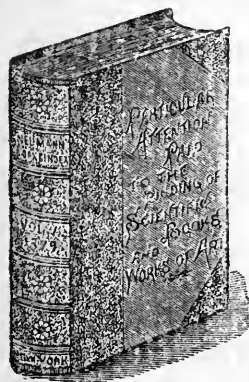 YORK
PARTICULAR
ATTENTION
PAID
TO THE
BINDING OF
SCIENTIFIC
BOOKS
AND
WORKS OF ART